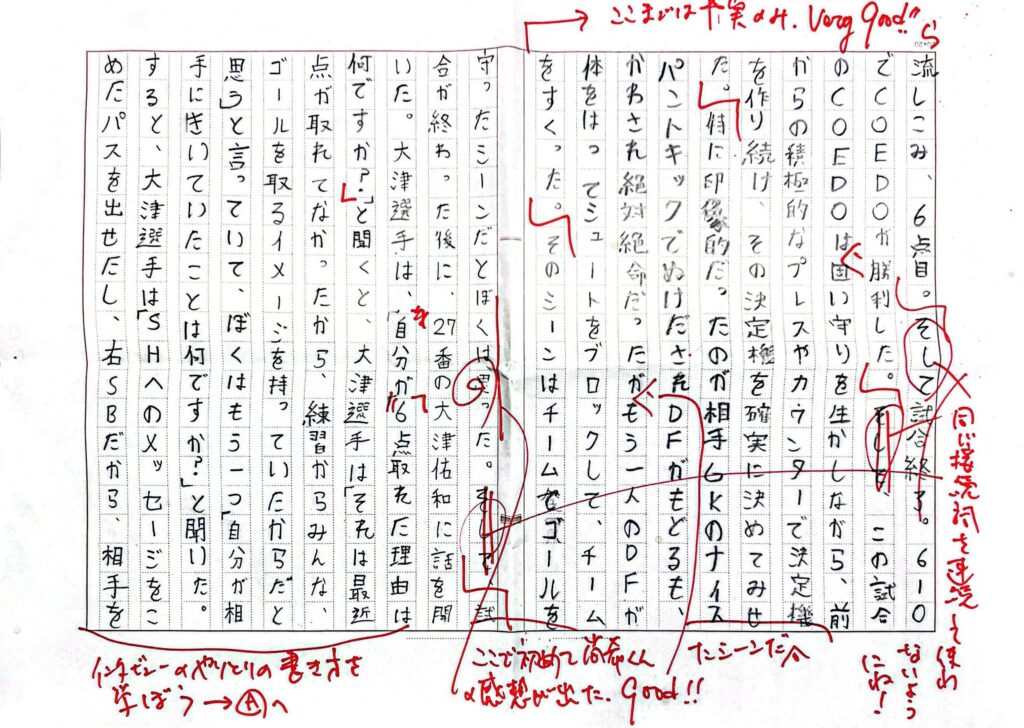 流しこみ、6点目。そして試合終了。6-0
でCOEDOが勝利した。そして、この試合
のCOEDOは固い守りを生かしながら、前
からの積極的なプレスやカウンターで決定機
を作り続け、その決定機を確実に決めてみせ
た。特に印象的だったのが相手GKのナイス
パントキックでぬけだされDFがもどるも、
かわされ絶対絶命だったがもう一人のDFが
体をはってシュートをブロックして、チーム
をすくった。そのシーンはチームでゴールを
守ったシーンだとぼくは思った。そして、試
合が終わった後に、27番の大津佑和に話を聞
いた。大津選手は、「自分が6点取れた理由は
何ですか?」と聞くと、大津選手は「それは最近
点が取れてなかったから、練習からみんな、
ゴールを取るイメージを持っていたからだと
思う」と言っていて、ぼくはもう一つ「自分が相
手にきいていたことは何ですか?」と聞いた。
すると、大津選手は「SHへのメッセージをこ
めたパスを出せたし、右SBだから、相手を
ここまでは事実のみ。Very good!!
同じ接続詞を連続して使わ
ないよう
にね!
たシーンだ
ここで初めて
感想が出た。Good!!
インタビューのやりとりの書き方を
学ぼう→Aへ